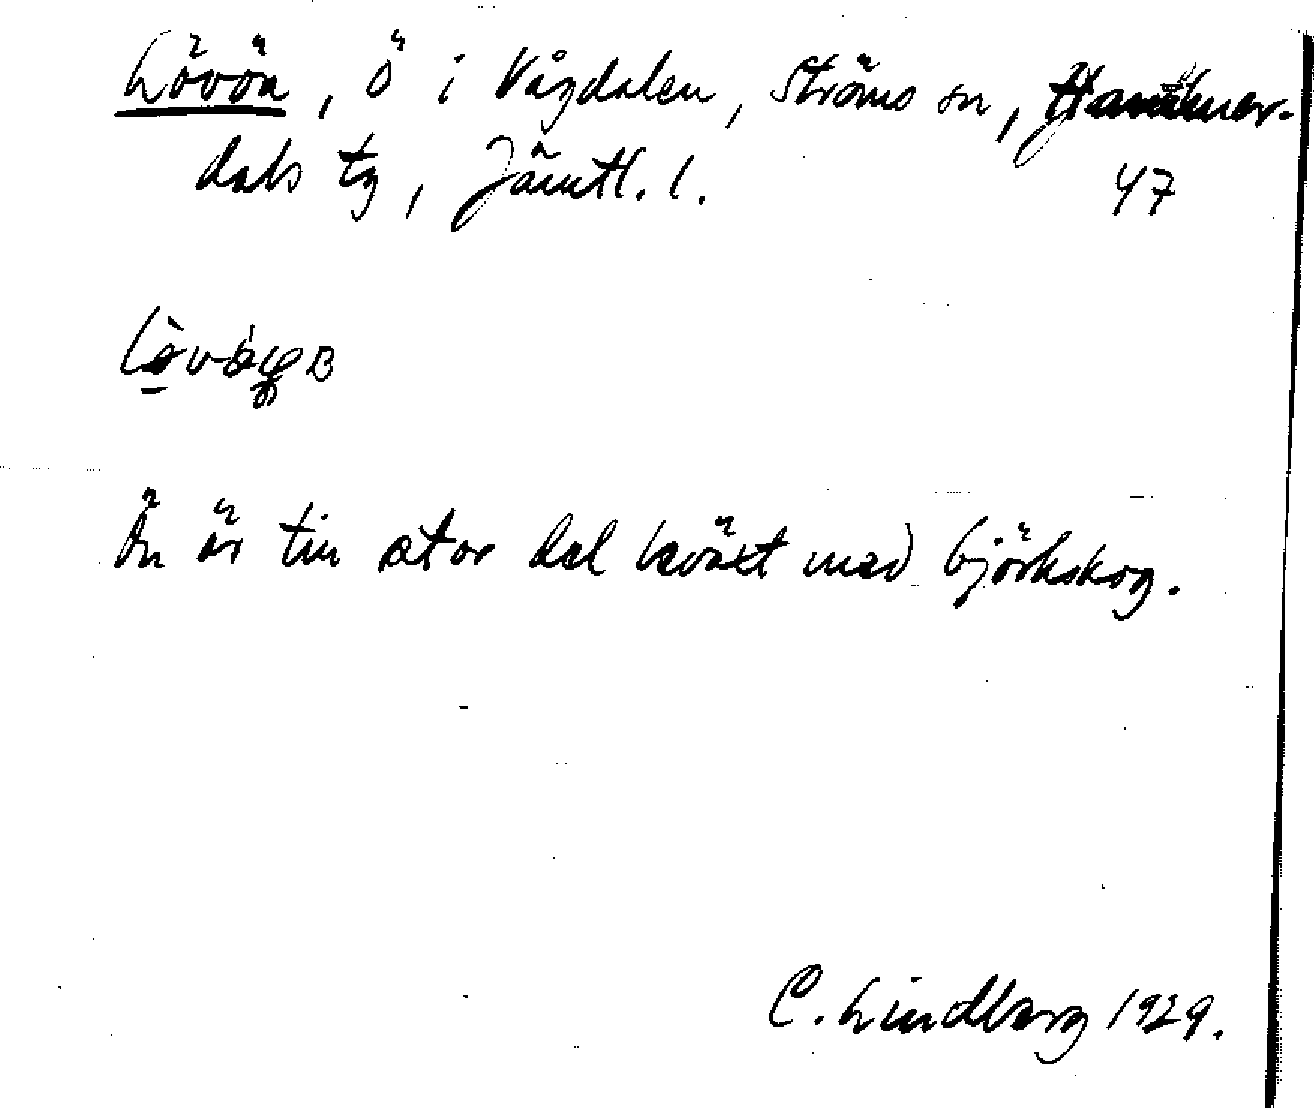 Lövön, ö i Vågdalen, Ströms sn, Hammer-
dals tg, Jämtl. l.
47
Ön är till stor del beväxt med björkskog.
C. Lindberg 1929.